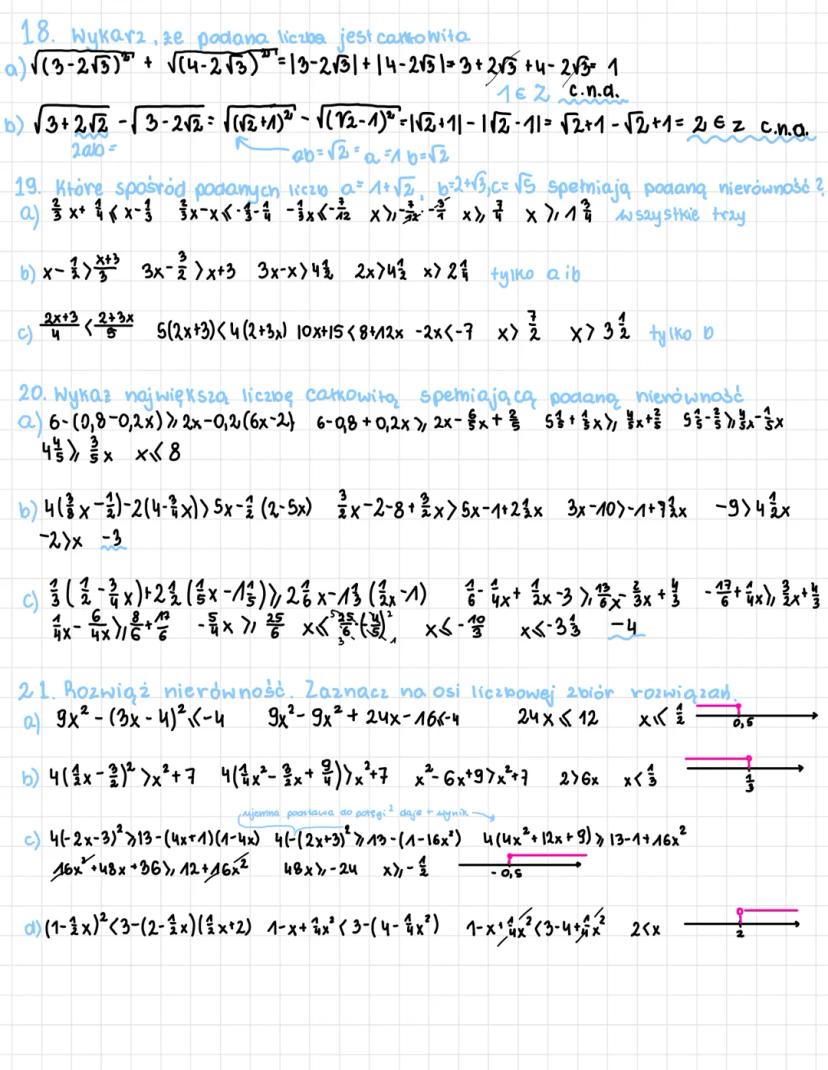 18. Wykarz, że podana liczba jest całkowita
a) √(3-2√3)² + √(4-2√3)² = |3-2√3| + |4-2√3| = 3+2√3 +4-2√3= 1
1 ∈ Z c.n.d.
b) √3+2√2 - √3-2√2 = √(√2+1)² - √(√2-1)² = |√2+1| - |√2-1| = √2+1 -√2+1= 2 ∈ Z c.n.d.
2ab = ab=√2 = a=1 b=√2
19. Które spośród podanych liczb a=1+√2, b=2+√3, c=√5 spełniają podaną nierówność?
a) 2/3 x + 1/4 ≤ x - 1/3 2/3 x - x ≤ -1/3 - 1/4 -1/3 x ≤ -7/12 x ≥ -7/12 · -3/1 x ≥ 7/4 x ≥ 1 3/4 wszystkie trzy
b) x - 1/2 > x+3/3 3x - 3/2 > x+3 3x-x > 4 1/2 2x > 4 1/2 x > 2 1/4 tylko a i b
c) 2x+3/4 < 2+3x/5 5(2x+3) < 4(2+3x) 10x+15 < 8+12x -2x < -7 x > 7/2 x > 3 1/2 tylko b
20. Wykaż największą liczbę całkowitą spełniającą podaną nierówność
a) 6-(0,8-0,2x) ≥ 2x-0,2(6x-2) 6-0,8+0,2x ≥ 2x - 6/5 x + 2/5 5 1/5 + 1/5 x ≥ 4/5 x + 2/5 5 1/5 - 2/5 ≥ 4/5 x - 1/5 x
4 4/5 ≥ 3/5 x x ≤ 8
b) 4(3/8 x - 1/2) - 2(4 - 3/4 x) > 5x - 1/2 (2-5x) 3/2 x - 2 - 8 + 3/2 x > 5x - 1 + 2 1/2 x 3x - 10 > -1 + 7 1/2 x -9 > 4 1/2 x
-2 > x -3
c) 1/3 (1/2 - 3/4 x) + 2 1/2 (1/5 x - 1 1/5) ≥ 2 1/6 x - 1 1/3 (1/2 x - 1) 1/6 - 1/4 x + 1/2 x - 3 ≥ 13/6 x - 2/3 x + 4/3 -17/6 + 1/4 x ≥ 3/2 x + 4/3
1/4 x - 6/4 x ≥ 8/6 + 17/6 -5/4 x ≥ 25/6 x ≤ 25/6 · (4/5) x ≤ -10/3 x ≤ -3 1/3 -4
21. Rozwiąż nierówność. Zaznacz na osi liczbowej zbiór rozwiązań.
a) 9x² - (3x - 4)² ≤ -4 9x² - 9x² + 24x - 16 ≤ -4 24x ≤ 12 x ≤ 1/2 0,5
b) 4(1/2 x - 3/2)² > x² + 7 4(1/4 x² - 3/2 x + 9/4) > x² + 7 x² - 6x + 9 > x² + 7 2 > 6x x < 1/3 1/3
ujemna podstawa do potęgi ² daje + wynik
c) 4(-2x-3)² ≥ 13 - (4x+1)(1-4x) 4(-(2x+3)² ≥ 13 - (1-16x²) 4(4x² + 12x + 9) ≥ 13-1+16x²
16x² + 48x + 36 ≥ 12 + 16x² 48x ≥ -24 x ≥ -1/2 -0,5
d) (1 - 1/2 x)² < 3 - (2 - 1/2 x)(1/2 x + 2) 1 - x + 1/4 x² < 3 - (4 - 1/4 x²) 1 - x + 1/4 x² < 3 - 4 + 1/4 x² 2 < x 2